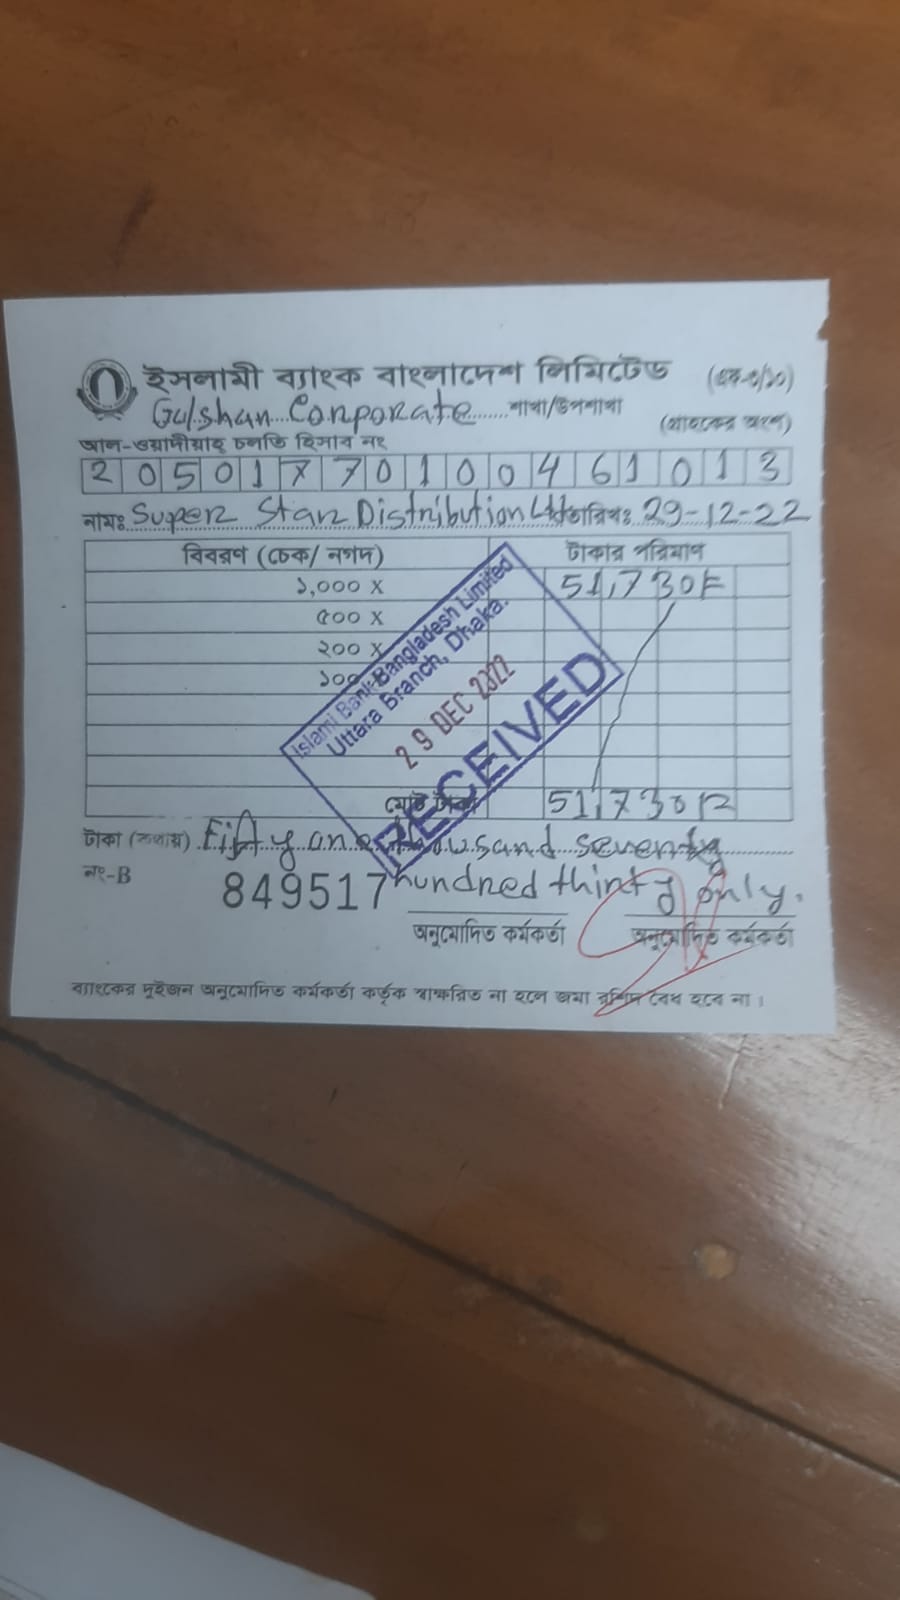 ইসলামী ব্যাংক বাংলাদেশ লিমিটেড (এফ-৩/১০)
Gulshan Corporate শাখা/উপশাখা
(গ্রাহকের অংশ)
আল-ওয়াদীয়াহ্ চলতি হিসাব নং
2 0 5 0 1 7 7 0 1 0 0 4 6 1 0 1 3
নামঃ Super Star Distribution Ltd তারিখঃ 29-12-22
বিবরণ (চেক/ নগদ) টাকার পরিমাণ
১,০০০ X 51,730
৫০০ X
২০০ X
১০০
Islami Bank Bangladesh Limited
Uttara Branch, Dhaka.
29 DEC 2022
RECEIVED
মোট টাকা 51,730
টাকা (কথায়) Fifty one thousand seventy
নং-B 849517 hundred thirty only.
অনুমোদিত কর্মকর্তা অনুমোদিত কর্মকর্তা
ব্যাংকের দুইজন অনুমোদিত কর্মকর্তা কর্তৃক স্বাক্ষরিত না হলে জমা রশিদ বৈধ হবে না।